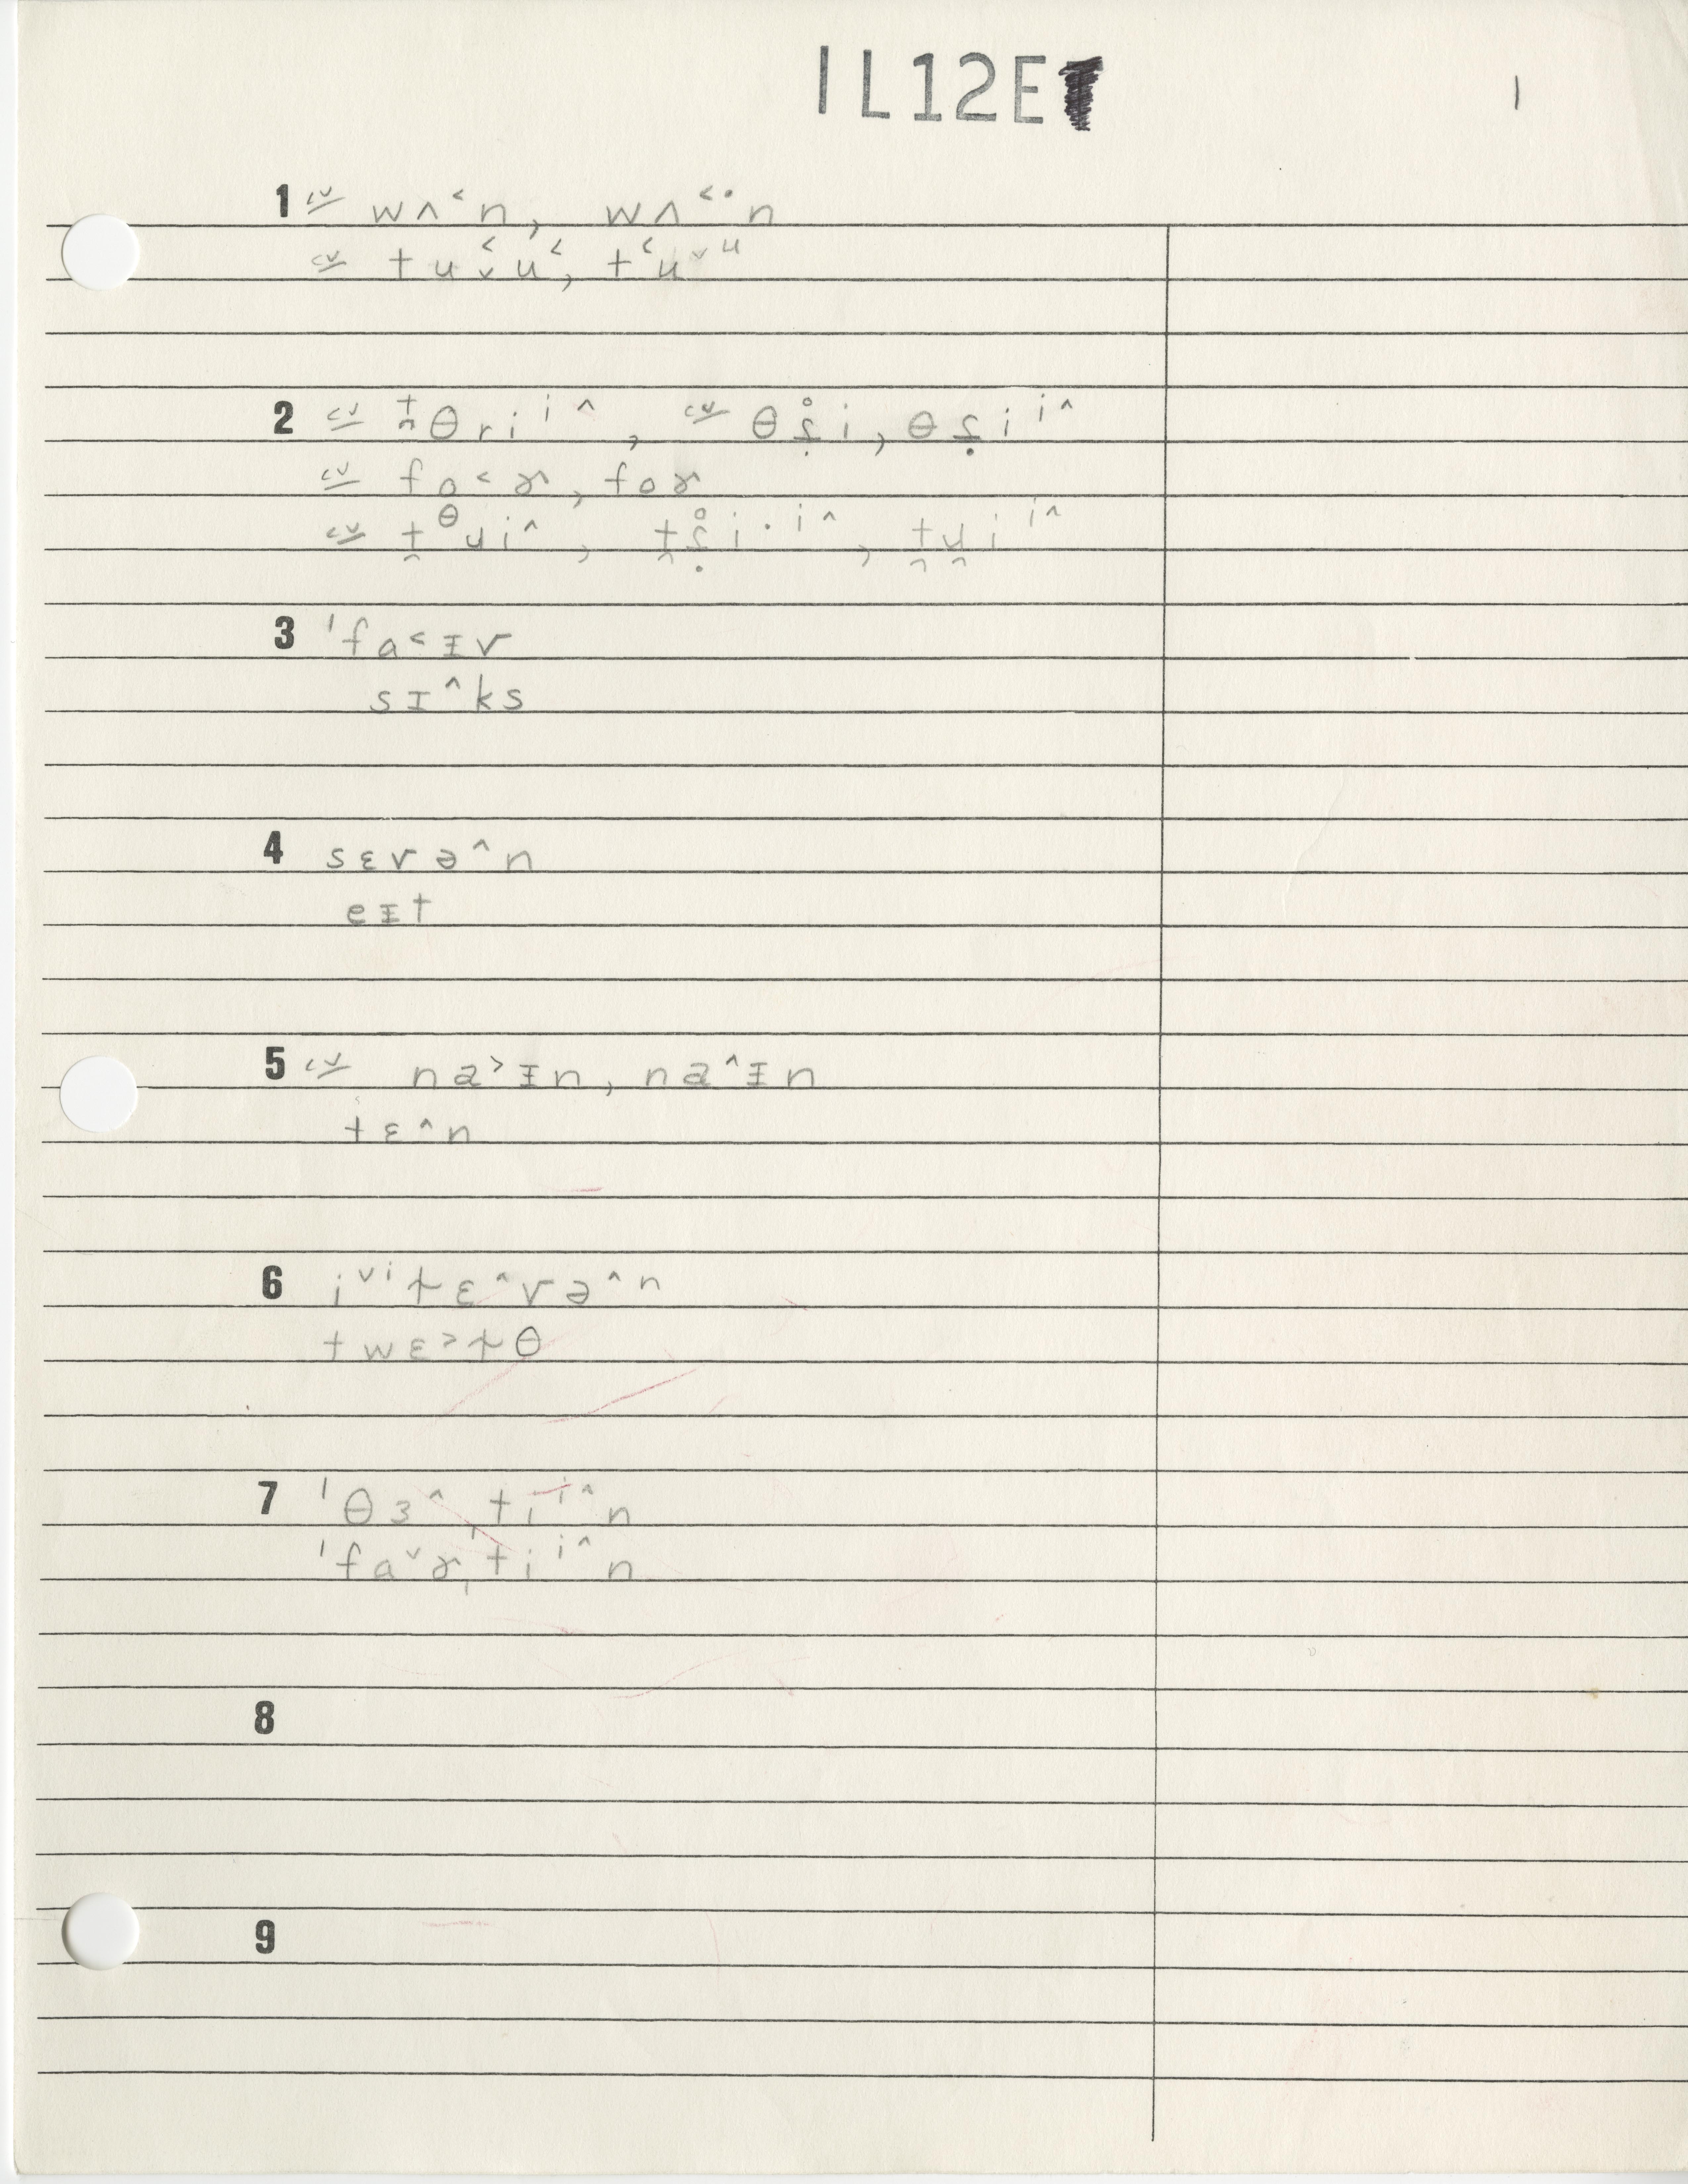 IL12E
1
1 cv wʌ˂n, wʌ˂·n
cv tu˂˅u˂, t˂u˅ᵘ
2 cv t̪θriⁱ˄, cv θʂ̊i, θʂiⁱ˄
cv fo˂ɚ, foɚ
cv t̪ᶿɹi˄, t̪ʂ̊i·ⁱ˄, t̪ɹ̪iⁱ˄
3 ˈfa˂ɪv
sɪ˄ks
4 sɛvə˄n
eɪt
5 cv na˃ɪn, na˄ɪn
tɛ˄n
6 i˅ⁱɫɛ˄və˄n
twɛ˃ɫθ
7 ˈθɜ˄ˌtiⁱ˄n
ˈfɑ˅ɚˌtiⁱ˄n
8
9